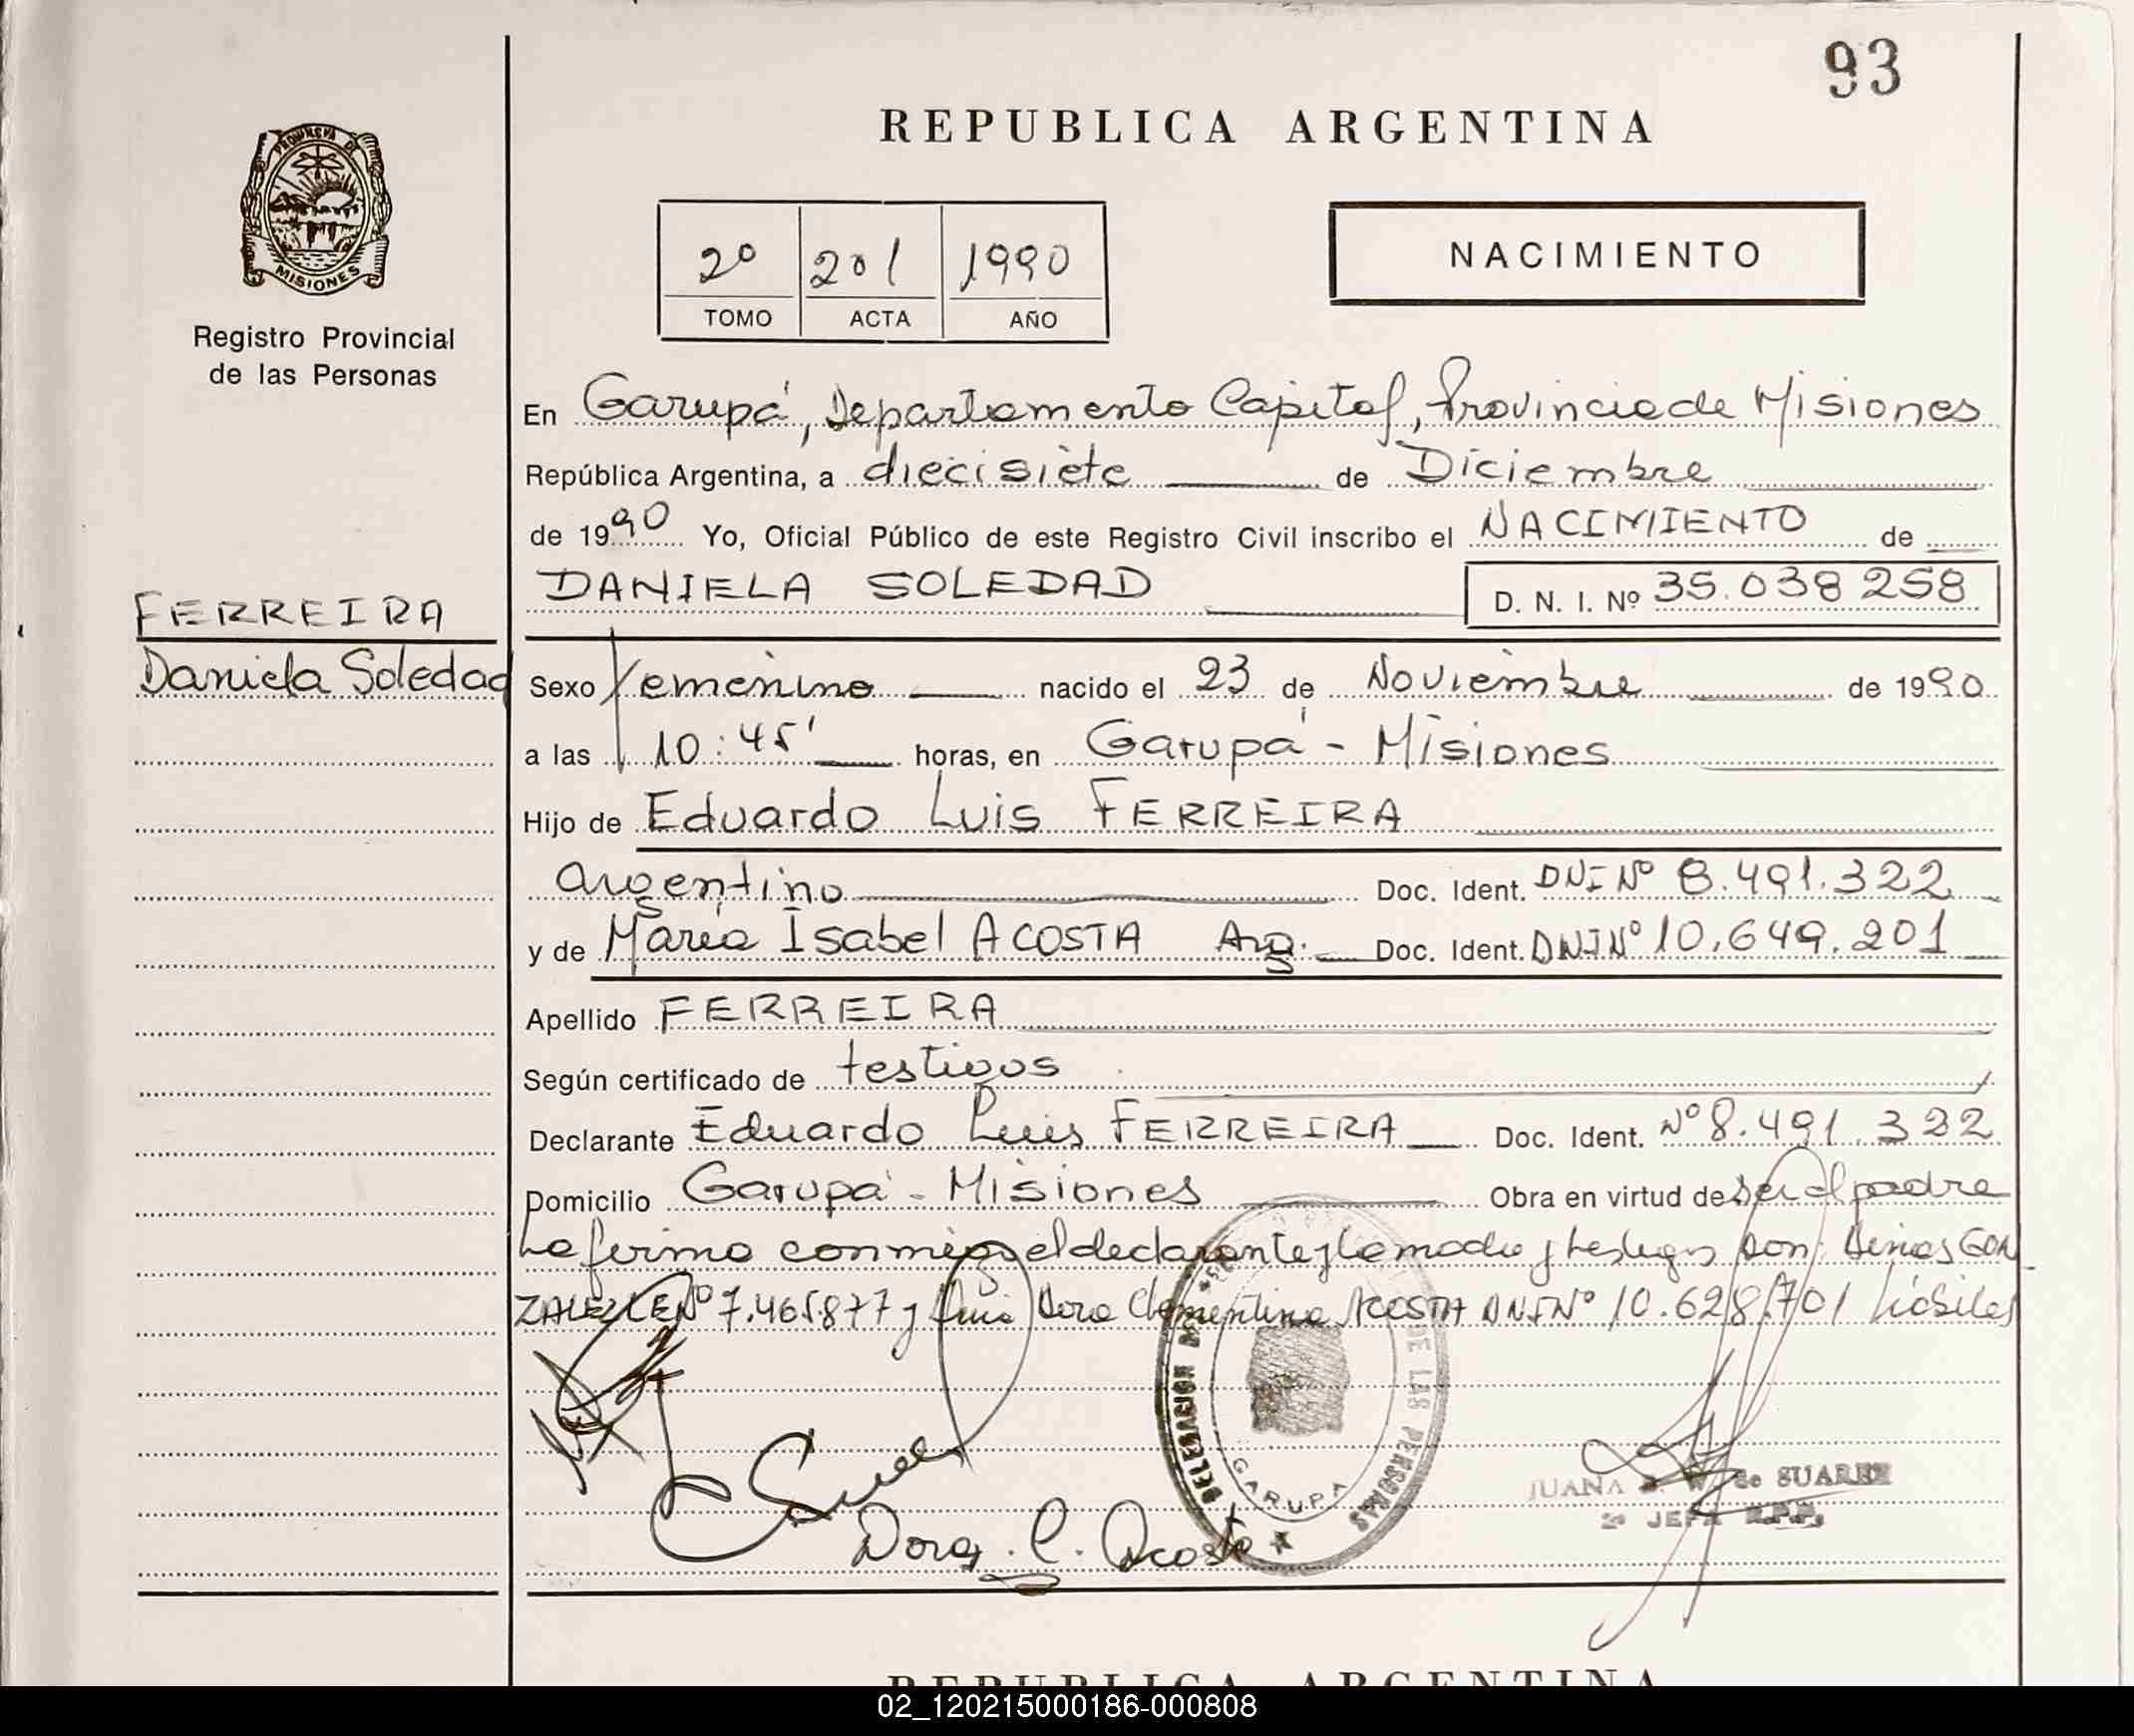 93
REPUBLICA ARGENTINA
PROVINCIA DE
MISIONES
Registro Provincial
de las Personas
2º 201 1990
TOMO ACTA AÑO
NACIMIENTO
En Garupá, Departamento Capital, Provincia de Misiones
República Argentina, a diecisiete de Diciembre
de 1990 Yo, Oficial Público de este Registro Civil inscribo el NACIMIENTO de
DANIELA SOLEDAD D. N. I. Nº 35.038 258
FERREIRA
Daniela Soledad
Sexo femenino nacido el 23 de Noviembre de 1990
a las 10:45' horas, en Garupá - Misiones
Hijo de Eduardo Luis FERREIRA
argentino Doc. Ident. DNI Nº 8.491.322
y de María Isabel ACOSTA Arg. Doc. Ident. DNI Nº 10.649.201
Apellido FERREIRA
Según certificado de testigos
Declarante Eduardo Luis FERREIRA Doc. Ident. Nº 8.491.322
Domicilio Garupá - Misiones Obra en virtud de ser el padre
La firma conmigo el declarante y la madre y testigos son: GON
ZALEZ LE Nº 7.465.877 y Dora Clementina ACOSTA DNI Nº 10.628.701 hábiles
DELEGACION
DE LAS PERSONAS
GARUPA
Dora C. Acosta
JUANA de SUAREZ
2º JEFA R.P.P.
REPUBLICA ARGENTINA
02_120215000186-000808